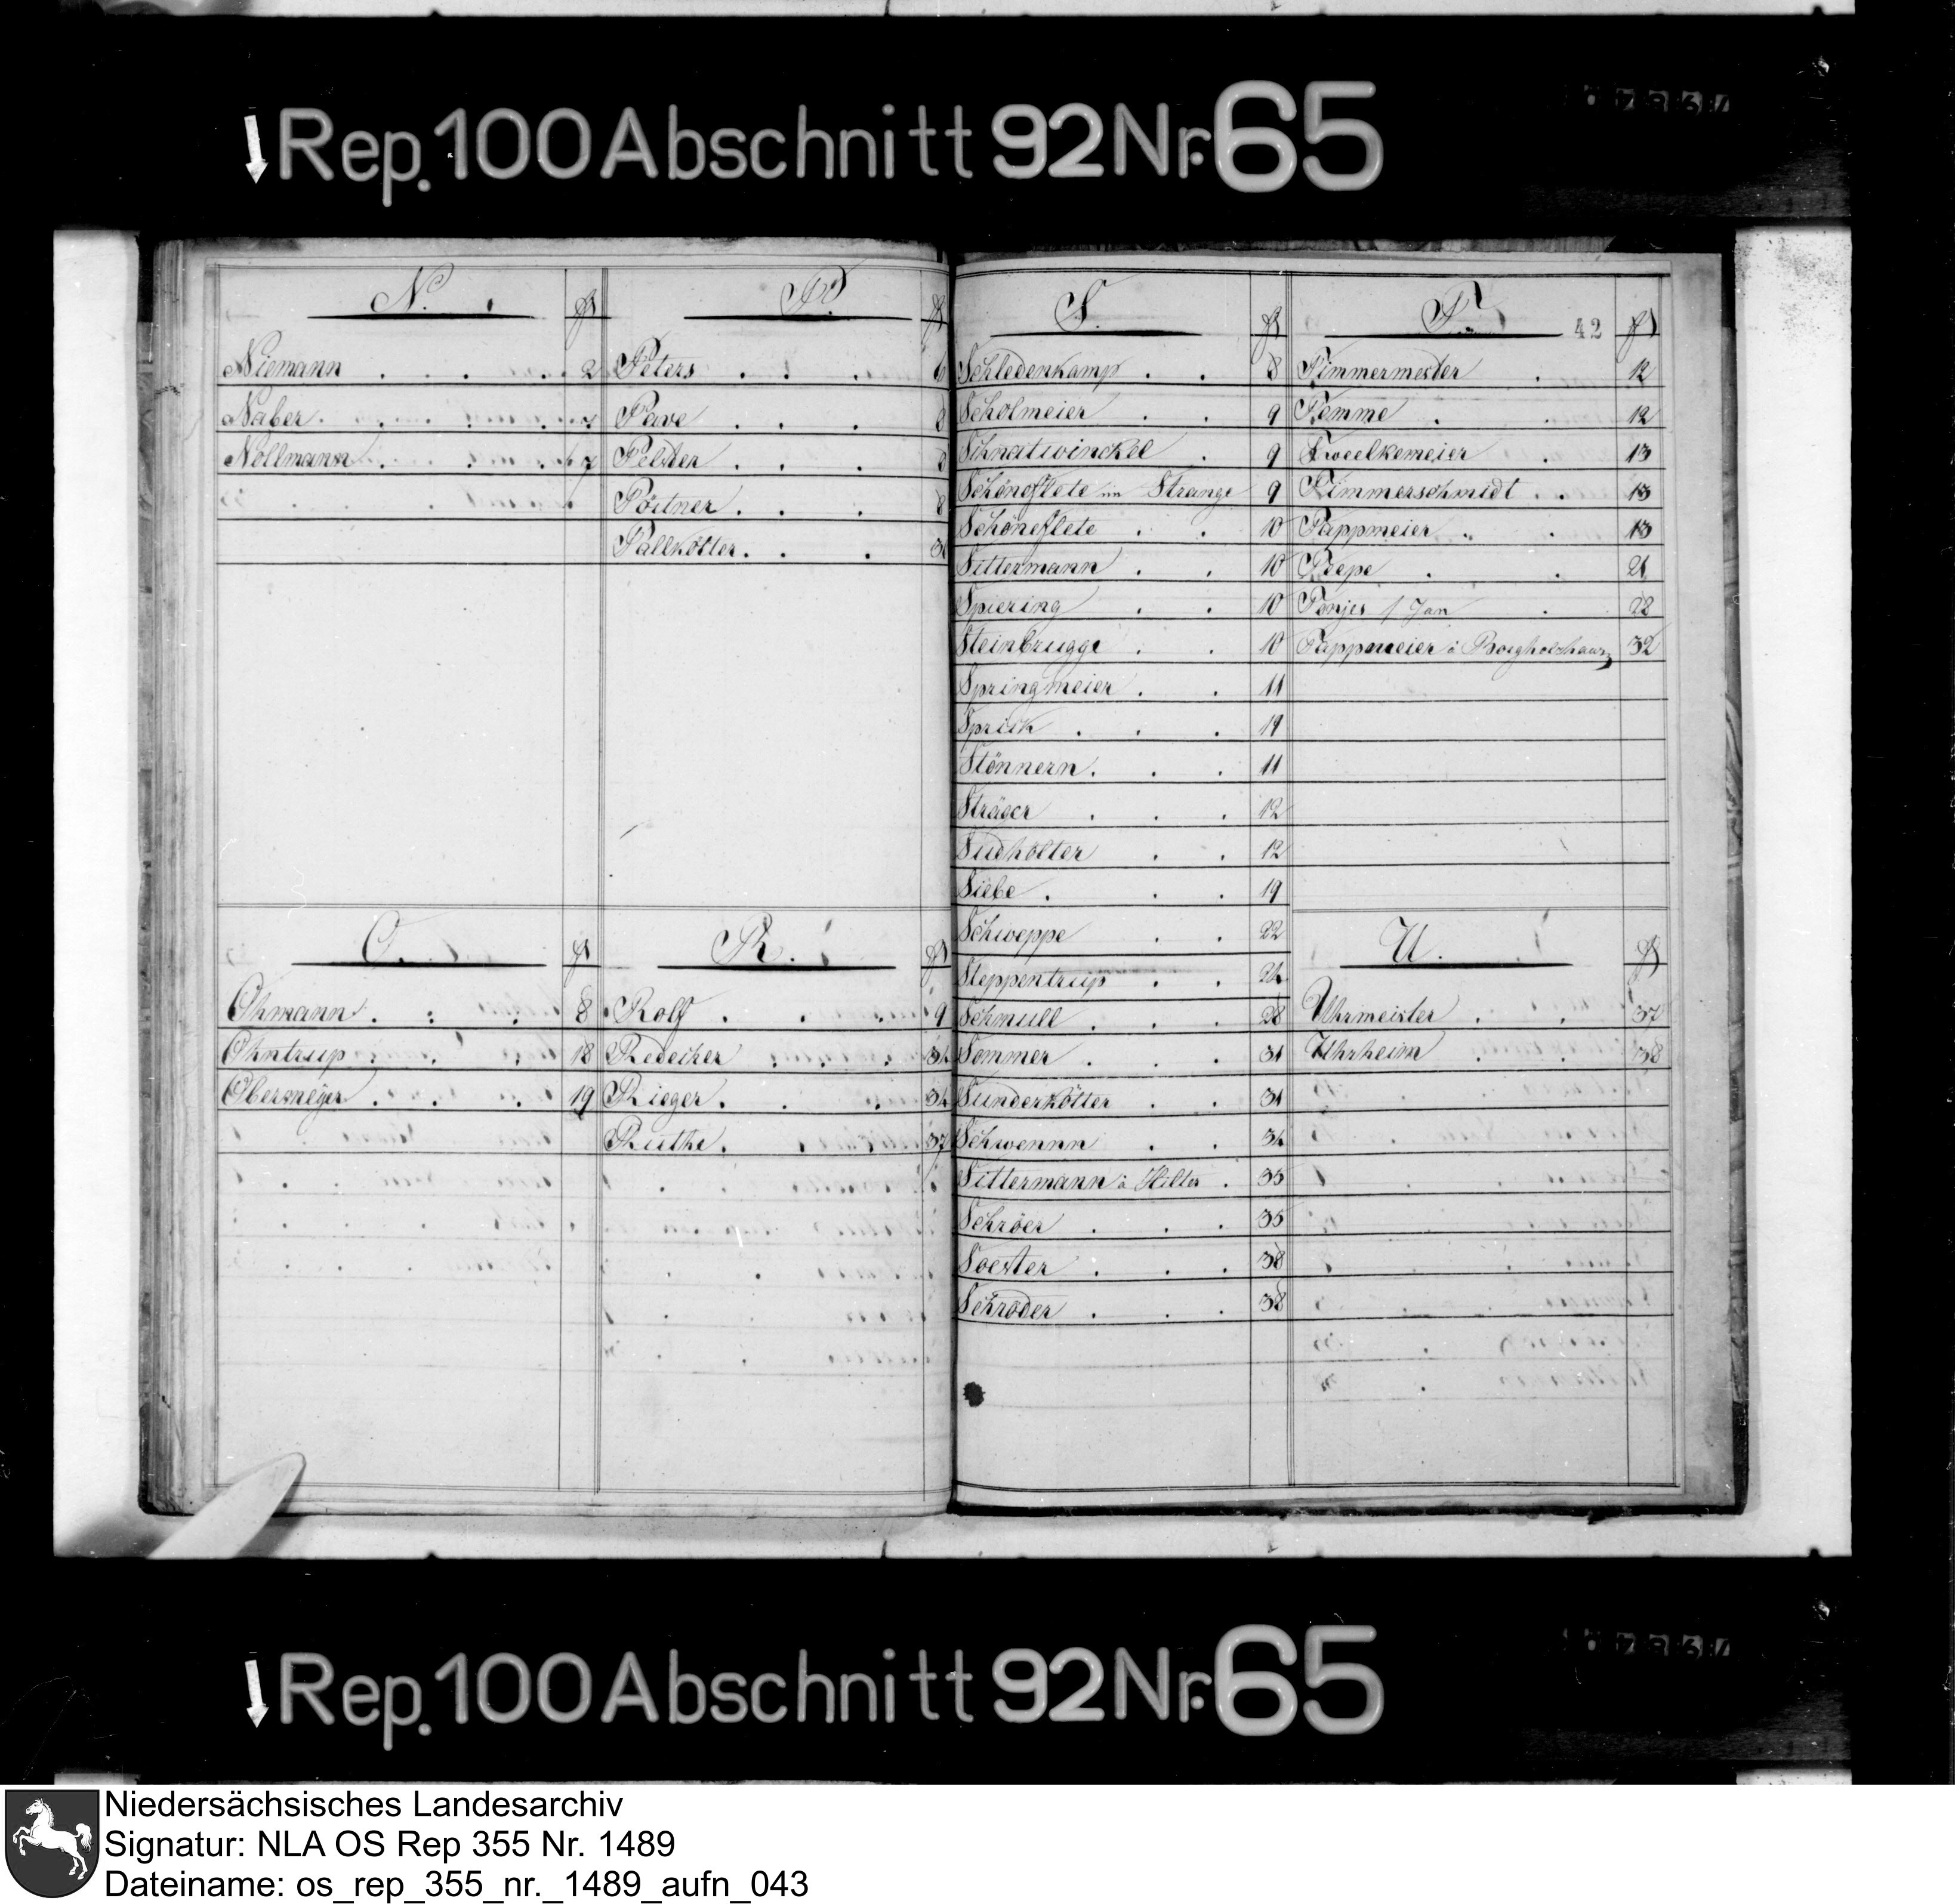 Rep. 100 Abschnitt 92 Nr. 65
N.
Niemann . . . . 2
Naber . . . . 7
Nollmann . . . . 7
P.
Peters . . . 6
Pave . . . 8
Pelster . . . 8
Pörtner . . . 8
Pallkötter . . .
O.
Ohmann . . . 8
Ohntrup . . . 18
Obermeÿer . . . 19
R.
Rolf . . . 9
Redecker . . . 34
Rieger . . . 34
Ruthe . . . 37
S.
Schledenkamp . . 8
Scholmeier . . 9
Schnatwinckel . 9
Schöneflete im Strange 9
Schöneflete . . 10
Sittermann . . 10
Spiering . . 10
Steinbrugge . . 10
Springmeier . . 11
Sprick . . .
Stönnern . . . 11
Sträger . . . 12
Sudhölter . . 12
Siebe . . . 19
Schweppe . . 22
Steppentrup . . 24
Schmull . . . 28
Sommer . . . 31
Sunderkötter . . 31
Schwennn . . 34
Sittermann à Hilter . 35
Schröer . . . 35
Soester . . . 38
Schröder . . . 38
T. 42
Timmermester . 12
Temme . . 12
Tweelkemeier . 13
Timmerschmidt . . 13
Tappmeier . . 13
Tiepe . . 21
Tonjes / Jan . 28
Tappmeier à Borgholzhaus 32
U.
Uhrmeister . . 37
Uhrheim . . 38
Rep. 100 Abschnitt 92 Nr. 65
Niedersächsisches Landesarchiv
Signatur: NLA OS Rep 355 Nr. 1489
Dateiname: os_rep_355_nr._1489_aufn_043